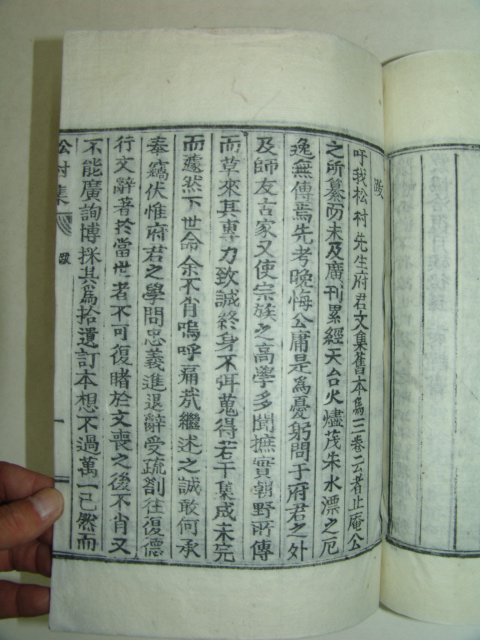 跋
呼我松村先生府君文集舊本爲三卷云者止庵公
之所纂而未及廣刊累經天台火燼茂朱水漂之厄
逸無傳焉先考晩悔公庸是爲憂躬問于府君之外
及師友古家又使宗族之高學多聞摭實朝野所傳
而草來其專力致誠終身不弭蒐得若干集成未完
而蘧然下世命余不肖嗚呼痛哉繼述之誠敢何承
奉竊伏惟府君之學問忠義進退辭受疏劄往復德
行文辭著於當世者不可復睹於文喪之後不肖又
不能廣詢博採其爲拾遺訂本想不過萬一已然而
松村集 跋 一